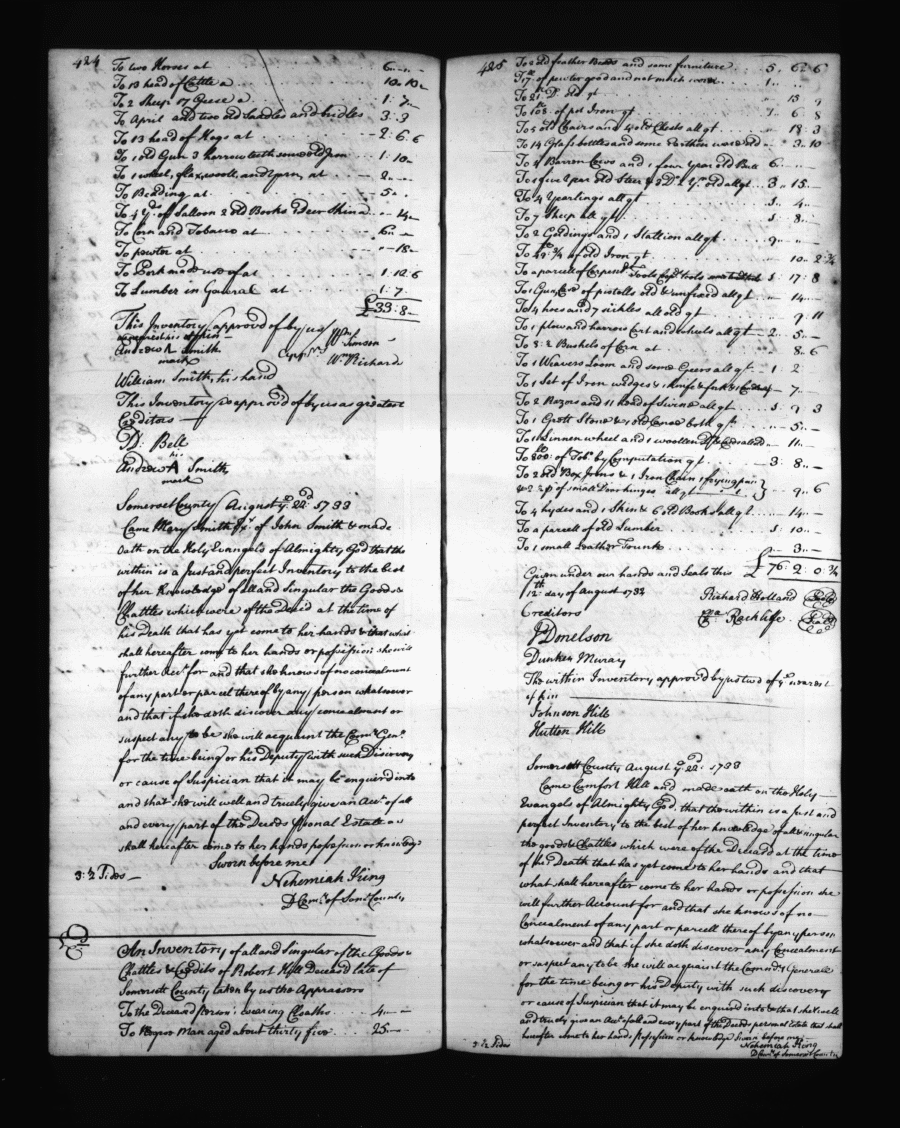 424
To two Horses at 6 .. -
To 13 head of Cattle a 10. 10 -
To 2 Sheep 17 Geese a 1: 7 -
To April and two old Saddles and bridles 3: 3
To 13 head of Hogs at 2: 6: 6
To 1 old Gun 3 harrow teeth some old Iron 1: 10 -
To 1 wheel, flax, wooll, and yarn, at 2 -
To Bedding at 5
To 4 yds of Salloon 2 old Books & Deer Skins 14 -
To Corn and Tobacco at 6 -
To pewter at - 18 -
To Pork made use of at 1: 12: 6
To Lumber in General at 1: 7
£33: 8 -
This Inventory approv'd of by us
nearest of kin
Andrew A Smith
mark
Wm
Wm Richard
William Smith, his hand
This Inventory so approv'd of by us as greatest
Creditors
D: Bell
his
Andrew A Smith
mark
Somerset County August ye 22d 1733
Came Mary Smith of John Smith & made
Oath on the Holy Evangels of Almighty God that the
within is a Just and perfect Inventory to the best
of her Knowledge of all and Singular the Goods &
Chattles which were of the Deced at the time of
his Death that has yet come to her hands & that what
shall hereafter come to her hands or possession she will
further Acct for and that she knows of no concealment
of any part or parcel thereof by any person whatsoever
and that if she doth discover any concealment or
suspect any to be she will acquaint the Comry Genl
for the time being or his Deputy with such Discovery
or cause of Suspician that it may be enquired into
and that she will well and truely give an Acct of all
and every part of the Deceds psonal Estate as
shall hereafter come to her hands possession or knowledge
Sworn before me
Nehemiah King
D Comry of Somst County
3: ½ Sides -
An Inventory of all and Singular of the Goods &
Chattles & Credits of Robert Hill Deceased late of
Somersett County taken by us the Appraisors
To the Deceased persons wearing Cloaths 4 - -
To Negroe Man aged about thirty five 25 -
425
To 2 old feather Beds and some furniture 5. 6: 6
To 17 lb of pewter good and not much worn 1. "
To 21 lb Do old qt 15 9
To 108 lb of pot Iron qt 6 8
To 5 old Chairs and 4 old Chests all qt 18: 3
To 14 Glass bottles and some Earthen ware old 3. 10
To 4 Barren Cows and 1 four year old Bull 6 -
To 1 five year old Steer & 2 Do 2 Yr old all qt 3. 15 -
To 4 Yearlings all qt 4 -
To 7 Sheep all qt 8 -
To 2 Geldings and 1 Stallion all qt 9 -
To 49 lb ¾ of old Iron qt 10. 2 ¾
To a parcell of Carpenders Tools 17: 8
To 1 Gun, Case of pistolls old & unfixed all qt 14 -
To 4 hoes and 7 sickles all old qt 9. 11
To 1 plow and harrow Cart and wheels all qt 2. 5 -
To 8: 2 Bushels of Corn at 8. 6
To 1 Weavers Loom and some Geers all qt 1: 2
To 1 Set of Iron wedges & 1 knife & fork 7 -
To 2 Razors and 11 head of Swine all qt 9 3
To 1 Grott Stone & 1 old Canoe both qt 5 -
To 1 Linnen wheel and 1 woollen 11 -
To 800 lb of Tobo by Computation qt 3: 8 -
To 2 old Box Irons & 1 Iron Chain 1 frying pan
& 2 pr of small Door hinges all qt 9. 6
To 4 hydes and 1 Skin & 6 old Books all qt 14 -
To a parcell of old Lumber 10 -
To 1 small Leather Trunk 3 -
£76: 2: 0: ¾
Given under our hands and Seals this
12th day of August 1732
Richard Holland Seal
Rackliffe Seal
Creditors
P Donelson
Dunken Muray
The within Inventory approv'd by us two of ye nearest
of kin
Johnson Hill
Hutton Hill
Somersett County August ye 22d 1733
Came Cumfort Hill and made oath on the Holy
Evangels of Almighty God that the within is a Just and
perfect Inventory to the best of her knowledge of all & singular
the goods & Chattles which were of the Deceasd at the time
of his Death that has yet come to her hands and that
what shall hereafter come to her hands or possession she
will further Account for and that she knows of no
Concealment of any part or parcell thereof by any person
whatsoever and that if she doth discover any Concealment
or suspect any to be she will acquaint the Commry Generall
for the time being or his Deputy with such discovery
or cause of Suspician that it may be enquired into & that she well
and truely give an Acct of all and every part of the Deceds personal Estate that shall
hereafter come to her hands possession or knowledge Sworn before me
Nehemiah King
D Comry of Somerset County
3: ½ Sides